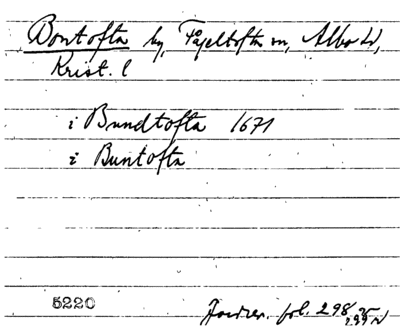 Bontofta by, Fågeltofta sn, Albo hd,
Krist. l
i Bundtofta 1671
i Buntofta
5220 Jordrev. fol. 298 v
299 v